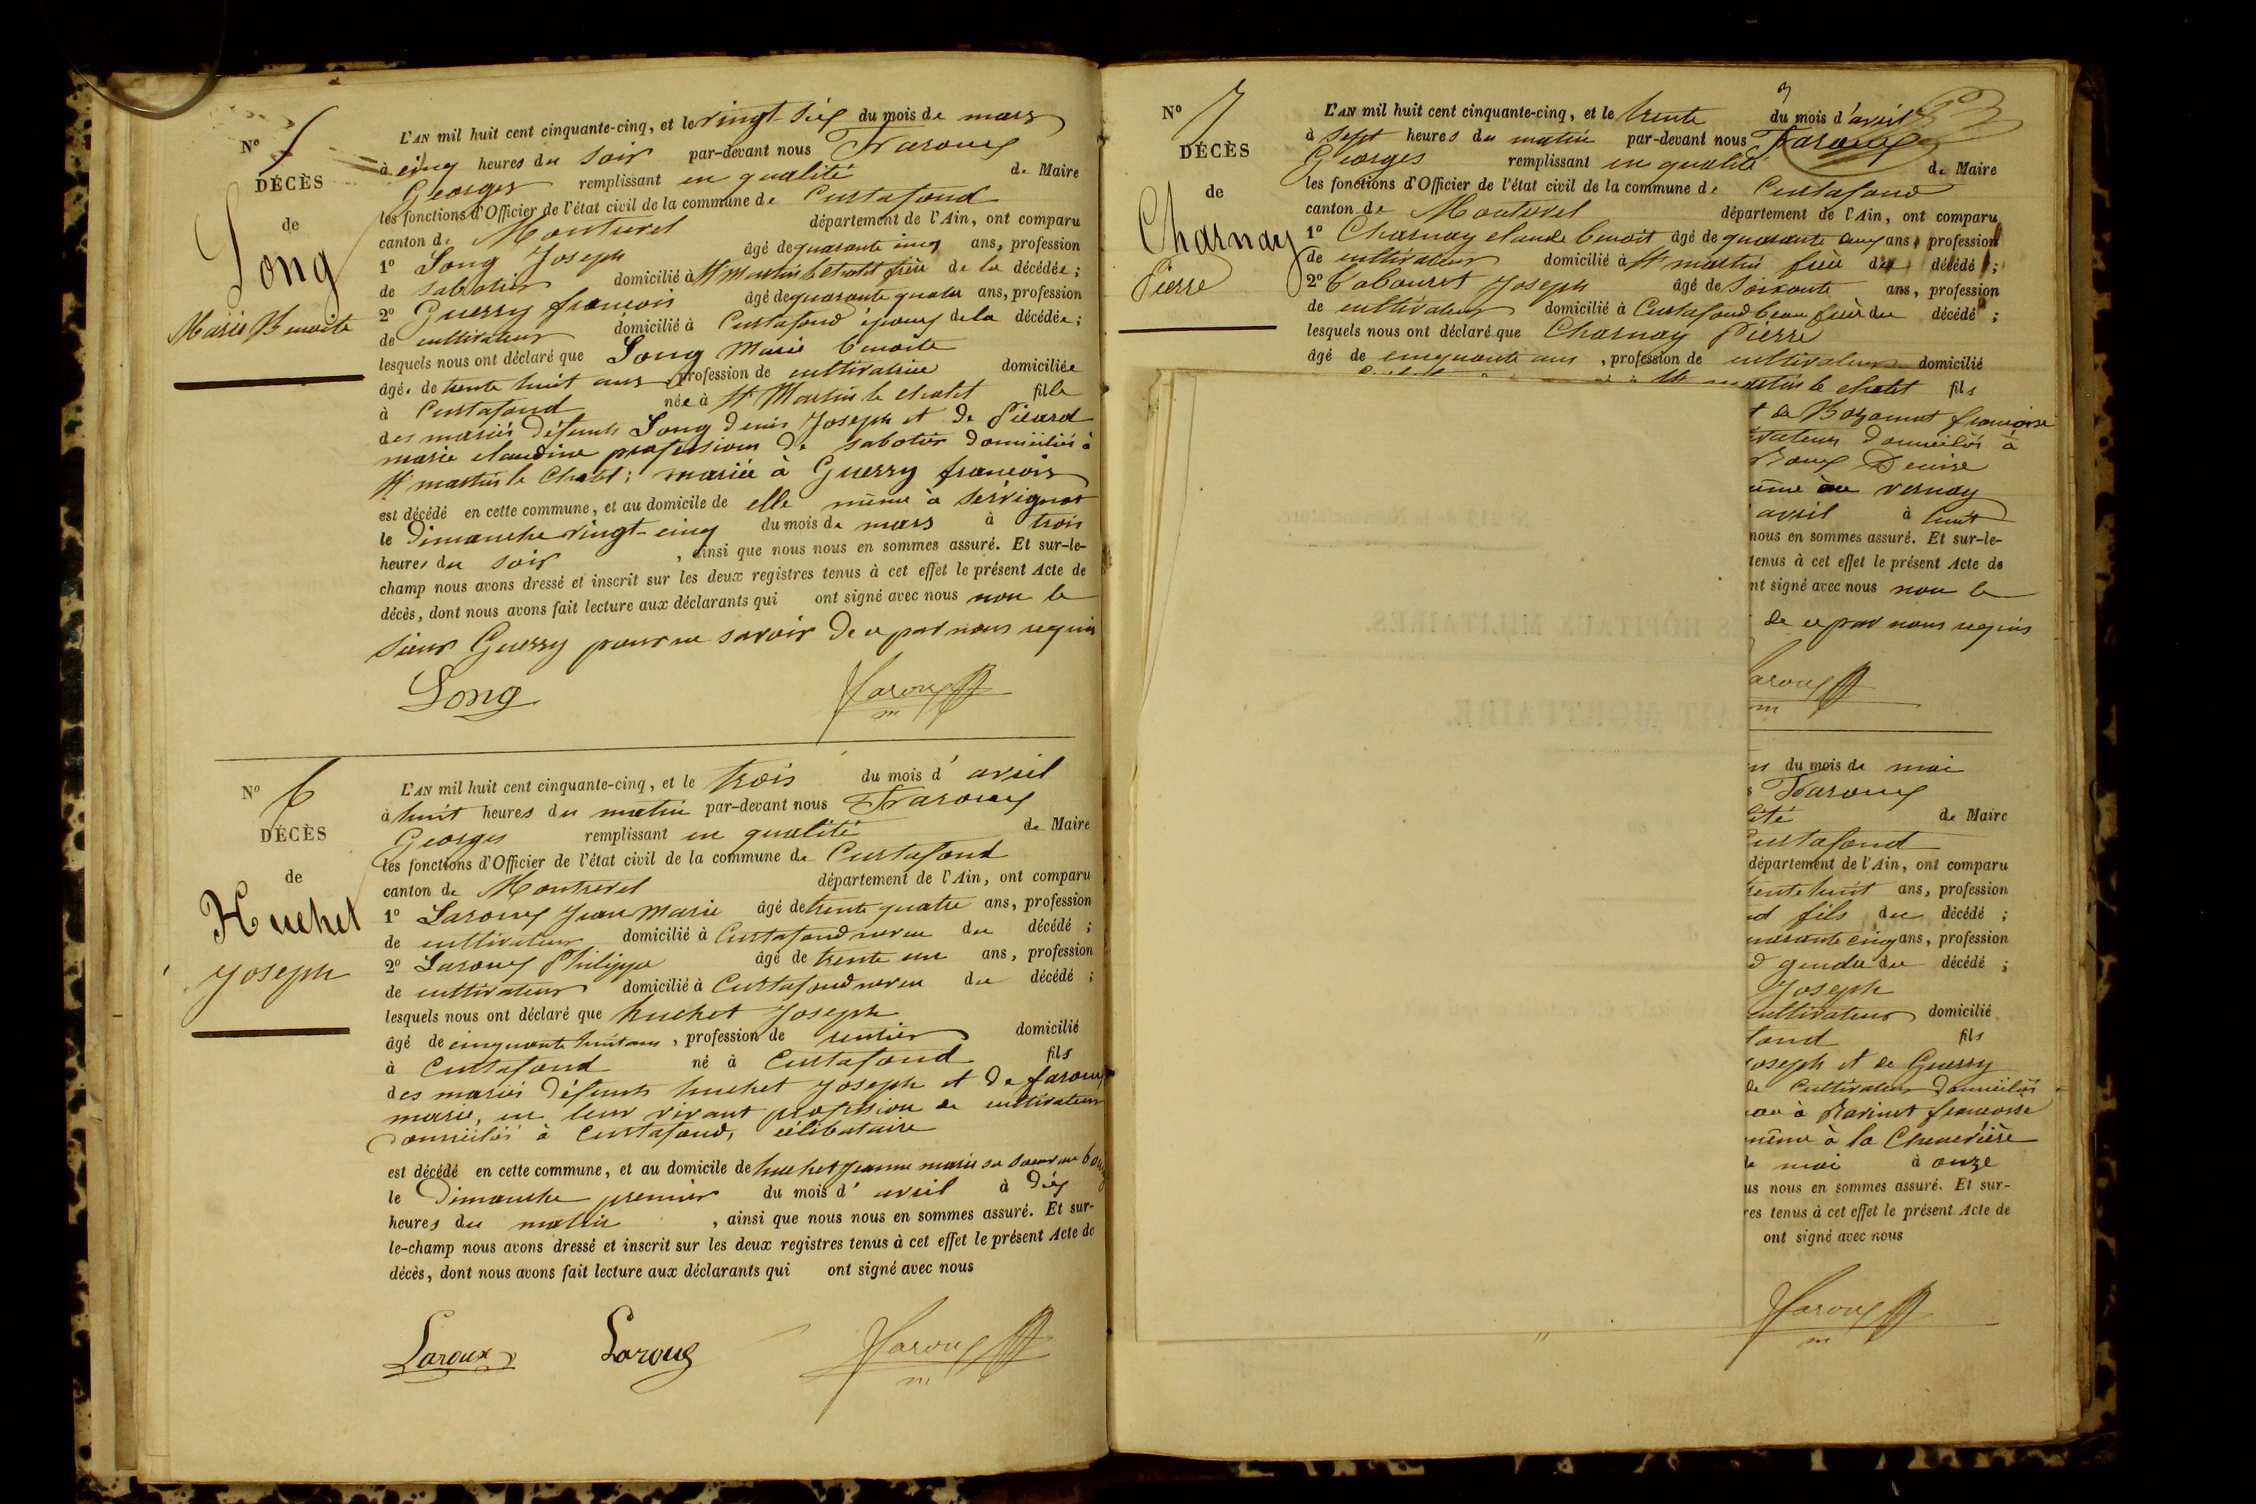 N° 5
DÉCÈS
de
Long
Marie Benoite
L'AN mil huit cent cinquante-cinq, et le vingt six du mois de mars
à cinq heures du soir par-devant nous Faroux
Georges remplissant en qualité de Maire
les fonctions d'Officier de l'état civil de la commune de Curtafond
canton de Montrevel département de l'Ain, ont comparu
1° Long Joseph âgé de quarante cinq ans, profession
de sabotier domicilié à St Martin le chatel frère de la décédée;
2° Guerry francois âgé de quarante quatre ans, profession
de cultivateur domicilié à Curtafond époux de la décédée;
lesquels nous ont déclaré que Long Marie benoite
âgée de trente huit ans, profession de cultivatrice domiciliée
à Curtafond née à St Martin le chatel fille
des mariés défunts Long denis Joseph et de Picard
marie claudine profession de sabotier domiciliés à
St martin le Chatel; mariée à Guerry francois
est décédé en cette commune, et au domicile de elle même à Servignat
le Dimanche vingt-cinq du mois de mars à trois
heures du soir, ainsi que nous nous en sommes assuré. Et sur-le-
champ nous avons dressé et inscrit sur les deux registres tenus à cet effet le présent Acte de
décès, dont nous avons fait lecture aux déclarants qui ont signé avec nous non le
sieur Guerry pour ne savoir de ce par nous requis
Long Faroux
m
N° 6
DÉCÈS
de
Huchet
Joseph
L'AN mil huit cent cinquante-cinq, et le trois du mois d'avril
à huit heures du matin par-devant nous Faroux
Georges remplissant en qualité de Maire
les fonctions d'Officier de l'état civil de la commune de Curtafond
canton de Montrevel département de l'Ain, ont comparu
1° Laroux Jean Marie âgé de trente quatre ans, profession
de cultivateur domicilié à Curtafond neveu du décédé;
2° Laroux Philippe âgé de trente un ans, profession
de cultivateur domicilié à Curtafond neveu du décédé;
lesquels nous ont déclaré que huchet Joseph
âgé de cinquante huit ans, profession de rentier domicilié
à Curtafond né à Curtafond fils
des mariés défunts huchet Joseph et de faroux
marie, en leur vivant profession de cultivateur
domiciliés à Curtafond, célibataire
est décédé en cette commune, et au domicile de huchet Jeanne marie sa soeur au bourg
le Dimanche premier du mois d'avril à dix
heures du matin, ainsi que nous nous en sommes assuré. Et sur-
le-champ nous avons dressé et inscrit sur les deux registres tenus à cet effet le présent Acte de
décès, dont nous avons fait lecture aux déclarants qui ont signé avec nous
Laroux Laroux Faroux
m
N° 7
DÉCÈS
de
Charnay
Pierre
3
L'AN mil huit cent cinquante-cinq, et le trente du mois d'avril
à sept heures du matin par-devant nous Faroux
Georges remplissant en qualité de Maire
les fonctions d'Officier de l'état civil de la commune de Curtafond
canton de Montrevel département de l'Ain, ont comparu
1° Charnay claude benoit âgé de quarante cinq ans, profession
de cultivateur domicilié à St martin frère du décédé;
2° Tabouret Joseph âgé de soixante ans, profession
de cultivateur domicilié à Curtafond beau frère du décédé;
lesquels nous ont déclaré que Charnay Pierre
âgé de cinquante ans, profession de cultivateur domicilié
St martin le chatel fils
t de Bozonnet francoise
ivateur domiciliés à
Roux Denise
ême au vernay
avril à huit
nous en sommes assuré. Et sur-le-
tenus à cet effet le présent Acte de
nt signé avec nous non le
de ce par nous requis
aroux
m
du mois de mai
s Faroux
lité de Maire
Curtafond
département de l'Ain, ont comparu
trente huit ans, profession
nd fils du décédé;
quarante cinq ans, profession
d gendre du décédé;
Joseph
cultivateur domicilié
fond fils
Joseph et de Guerry
de cultivateur domiciliés
à Ravinet francoise
même à la Chenevière
de mai à onze
us nous en sommes assuré. Et sur-
res tenus à cet effet le présent Acte de
ont signé avec nous
Faroux
m